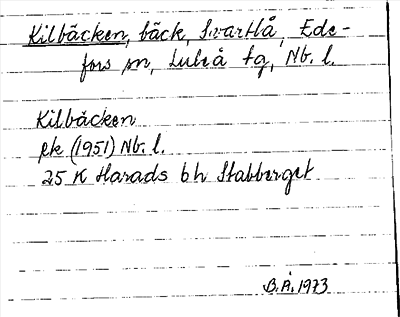 Kilbäcken, bäck, Svartlå, Ede-
fors sn, Luleå tg, Nb. l.
Kilbäcken
ek (1951) Nb. l.
25 K Harads bh Stabberget
B.Å. 1973